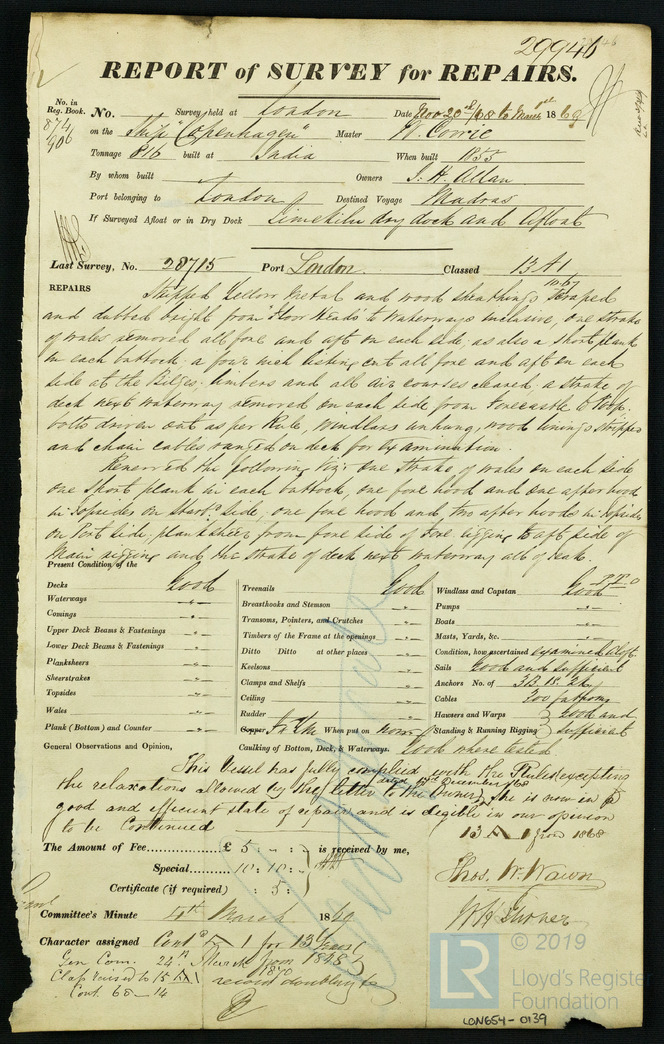 29946
REPORT of SURVEY for REPAIRS.
No. in Reg. Book.
874
906
No. Survey held at London Date Nov 20th /68 to March 1st 1869
on the Ship "Copenhagen" Master W. Corrie
Tonnage 816 built at India When built 1855
By whom built Owners J. H. Allan
Port belonging to London Destined Voyage Madras
If Surveyed Afloat or in Dry Dock Limekiln dry dock and Afloat
Last Survey, No. 28715 Port London Classed 13 A 1
10.67
REPAIRS Stripped Yellow Metal and wood sheathing scraped
and dubbed bright from "Floor Heads" to Waterways inclusive, one strake
of wales removed all fore and aft on each side, as also a short plank
in each buttock: a four inch listing cut all fore and aft on each
side at the Bilges. limbers and all air courses cleared: a strake of
deck next waterway removed on each side from Forecastle to Poop.
bolts driven out as per Rule, windlass unhung, wood linings stripped
and chain cables ranged on deck for examination.
Renewed the following Viz: one strake of wales on each side
one short plank in each buttock, one fore hood and one after hood
in topsides on starbd side, one fore hood and two after hoods in topsides
on Port side, planksheer from fore side of fore rigging to aft side of
Main rigging and the strake of deck next waterway all of teak.
P.T.O
Present Condition of the
Decks Good
Waterways -"-
Comings -"-
Upper Deck Beams & Fastenings -"-
Lower Deck Beams & Fastenings -"-
Planksheers -"-
Sheerstrakes -"-
Topsides -"-
Wales -"-
Plank (Bottom) and Counter -"-
Treenails Good
Breasthooks and Stemson -"-
Transoms, Pointers, and Crutches -"-
Timbers of the Frame at the openings -"-
Ditto Ditto at other places -"-
Keelsons -"-
Clamps and Shelfs -"-
Ceiling -"-
Rudder -"-
Copper When put on now
Windlass and Capstan Good
Pumps -"-
Boats -"-
Masts, Yards, &c. -"-
Condition, how ascertained examined aloft
Sails Good and sufficient
Anchors No. of 3B. 1S. 2K
Cables 300 fathoms
Hawsers and Warps Good and
Standing & Running Rigging sufficient
General Observations and Opinion, Caulking of Bottom, Deck, & Waterways. Good where tested
This Vessel has fully complied with the Rules (excepting
dated 17th December /68
the relaxations allowed by the letter to the Owner) she is now in a
good and efficient state of repair and is eligible in our opinion
to be Continued 13 A 1 from 1868
The Amount of Fee £ 5 : - : - is received by me,
Special 10 : 10 : -
Certificate (if required) : 5 :
Thos. W. Wawn
Committee's Minute 4th March 1869
Character assigned Contd A 1 for 13 Years
from 1868
Gen Com. 24th March 1870
Class revised to 15 A 1 record doubling &c
Cont. 68 - 14
© 2019
LR
Lloyd's Register
Foundation
LON654-0139